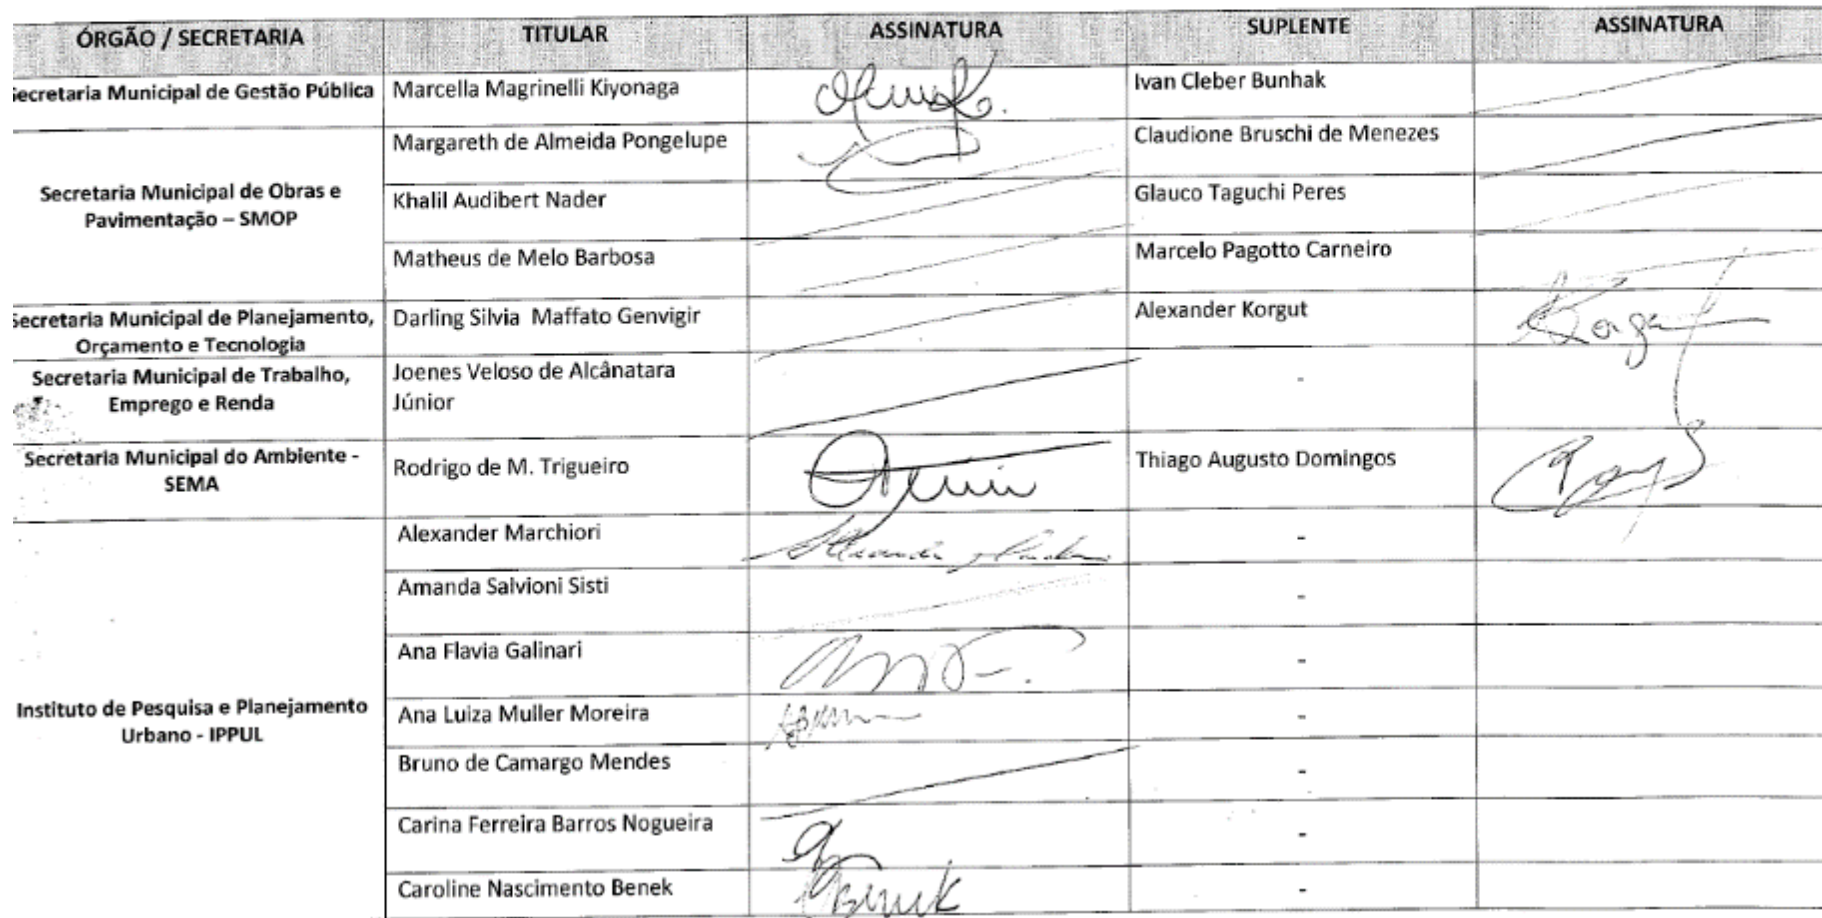 ÓRGÃO / SECRETARIA TITULAR ASSINATURA SUPLENTE ASSINATURA
ecretaria Municipal de Gestão Pública Marcella Magrinelli Kiyonaga Ivan Cleber Bunhak
Margareth de Almeida Pongelupe Claudione Bruschi de Menezes
Secretaria Municipal de Obras e
Pavimentação – SMOP
Khalil Audibert Nader Glauco Taguchi Peres
Matheus de Melo Barbosa Marcelo Pagotto Carneiro
Secretaria Municipal de Planejamento,
Orçamento e Tecnologia
Darling Silvia Maffato Genvigir Alexander Korgut
Secretaria Municipal de Trabalho,
Emprego e Renda
Joenes Veloso de Alcânatara
Júnior
-
Secretaria Municipal do Ambiente -
SEMA
Rodrigo de M. Trigueiro Thiago Augusto Domingos
Instituto de Pesquisa e Planejamento
Urbano - IPPUL
Alexander Marchiori -
Amanda Salvioni Sisti -
Ana Flavia Galinari -
Ana Luiza Muller Moreira -
Bruno de Camargo Mendes -
Carina Ferreira Barros Nogueira -
Caroline Nascimento Benek Benek -